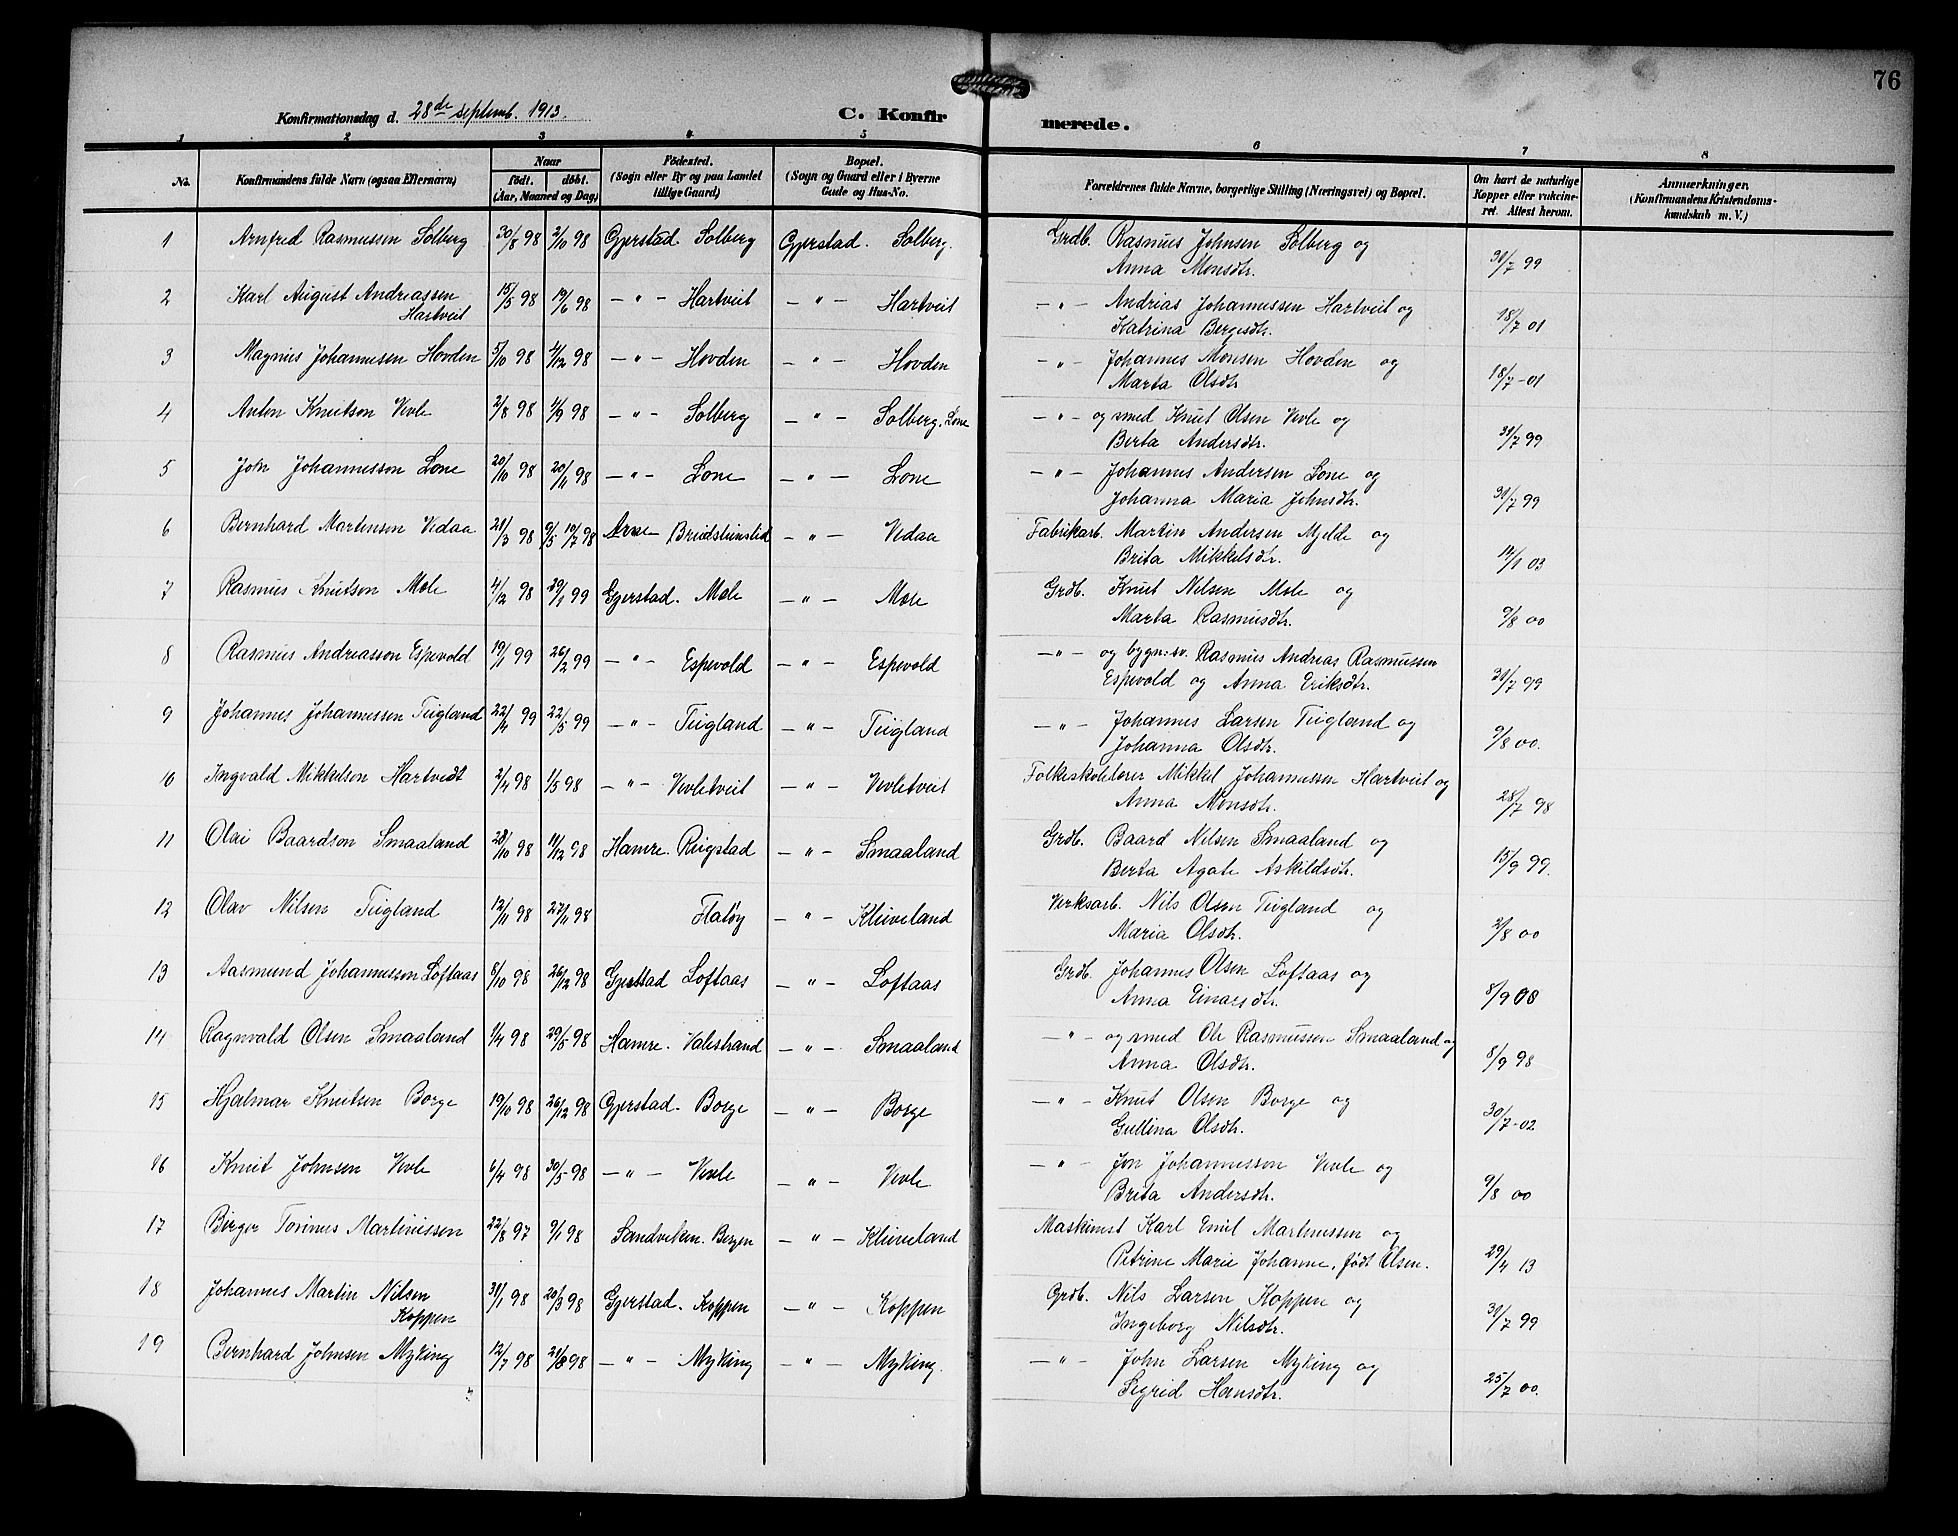 76
Konfirmationsdag d. 28de septemb. 1913. C. Konfirmerede.
1 2 3 4 5 6 7 8
No. Konfirmandens fulde Navn (ogsaa Efternavn) Naar födt. döbt. (Aar, Maaned og Dag) Födested. (Sogn eller By og paa Landet tillige Gaard) Bopæl. (Sogn og Gaard eller i Byerne Gade og Hus-No. Forældrenes fulde Navne, borgerlige Stilling (Næringsvei) og Bopæl. Om havt de naturlige Kopper eller vakcineret. Attest herom. Anmærkninger. (Konfirmandens Kristendomskundskab m. V.)
1 Arnfred Rasmussen Solberg 30/8 98 2/10 98 Gjerstad Solberg Gjerstad. Solberg. Grdb. Rasmus Johnsen Solberg og
Anna Monsdtr. 31/7 99
2 Karl August Andreassen 15/5 98 19/6 98 — " — Hartveit — " — Hartveit — " — Andrias Johannessen Hartveit og
Hartveit Katrina Bergesdtr. 18/7 01
3 Magnus Johannesen Hovden 5/10 98 4/12 98 — " — Hovden — " — Hovden — " — Johannes Monsen Hovden og
Marta Olsdtr 18/7 - 01
4 Anton Knutson Vevle 2/8 98 4/9 98 — " — Solberg — " — Solberg. Lone — " — og smed Knut Olsen Vevle og
Berta Andersdtr. 31/7 99
5 John Johannesson Lone 20/10 98 20/11 98 — " — Lone — " — Lone — " — Johannes Andersen Lone og
Johanna Maria Johnsdtr. 31/7 99
6 Bernhard Martensen Vedaa 21/3 98 9/5 10/7 98 Arne — " — Vedaa Fabrikarb. Martin Andersen Mjelde og
Brita Mikkelsdtr. 14/1 03
7 Rasmus Knutson Mæle 4/12 98 29/1 99 Gjerstad. Mæle — " — Mæle Grdb. Knut Nilsen Mæle og
Marta Rasmusdtr. 9/8 00
8 Rasmus Andreasson Espevold 19/1 99 26/2 99 — " — Espevold — " — Espevold — " — og bygn: sv. Rasmus Andreas Rasmussen
Espevold og Anna Eriksdtr. 31/7 99
9 Johannes Johannessen Tügland 22/4 99 22/5 99 — " — Tügland — " — Tügland — " — Johannes Larsen Tügland og
Johanna Olsdtr. 9/8 00.
10 Ingvald Mikkelson Hartvedt 2/4 98 1/5 98 — " — Vevletveit — " — Vevletveit Folkeskolelærer Mikkel Johannessen Hartveit og
Anna Monsdtr. 28/7 98
11 Olai Baardson Smaaland 28/10 98 11/12 98 Hamre. Rügstad — " — Smaaland Grdb. Baard Nilsen Smaaland og
Berta Agate Askildsdtr. 15/9 99.
12 Olav Nilsen Tügland 12/11 98 27/11 98 Flatøy — " — Kleiveland Verksarb. Nils Olsen Tügland og
Maria Olsdtr. 2/8 00
13 Aasmund Johannesson Loftaas 8/10 98 26/12 98 Gjerstad Loftaas — " — Loftaas Grdb. Johannes Olsen Loftaas og
Anna Einarsdtr. 8/9 08
14 Ragnvald Olsen Smaaland 1/4 98 29/5 98 Hamre. Valestrand — " — Smaaland " — og smed Ole Rasmussen Smaaland og
Anna Olsdtr. 8/9 98
15 Hjalmar Knutsen Borge 19/10 98 26/12 98 Gjerstad. Borge — " — Borge — " — Knut Olsen Borge og
Gullina Olsdtr. 30/7 - 02
16 Knut Johnsen Vevle 6/4 98 30/5 98 — " — Vevle — " — Vevle — " — Jon Johannessen Vevle og
Brita Andersdtr. 9/8 00
17 Birger Torinus Martinissen 22/8 97 9/1 98 Sandviken. Bergen — " — Kleiveland Maskinist Karl Emil Martinussen og
Petrine Marie Johanne, født Olsen. 29/4 13
18 Johannes Martin Nilsen 31/1 98 20/3 98 Gjerstad. Koppen — " — Koppen Grdb. Nils Larsen Koppen og
Koppen Ingeborg Nilsdtr. 31/7 99
19 Bernhard Johnsen Myking 12/7 98 21/8 98 — " — Myking — " — Myking. — " — John Larsen Myking og
Sigrid Hansdtr. 25/7 00.